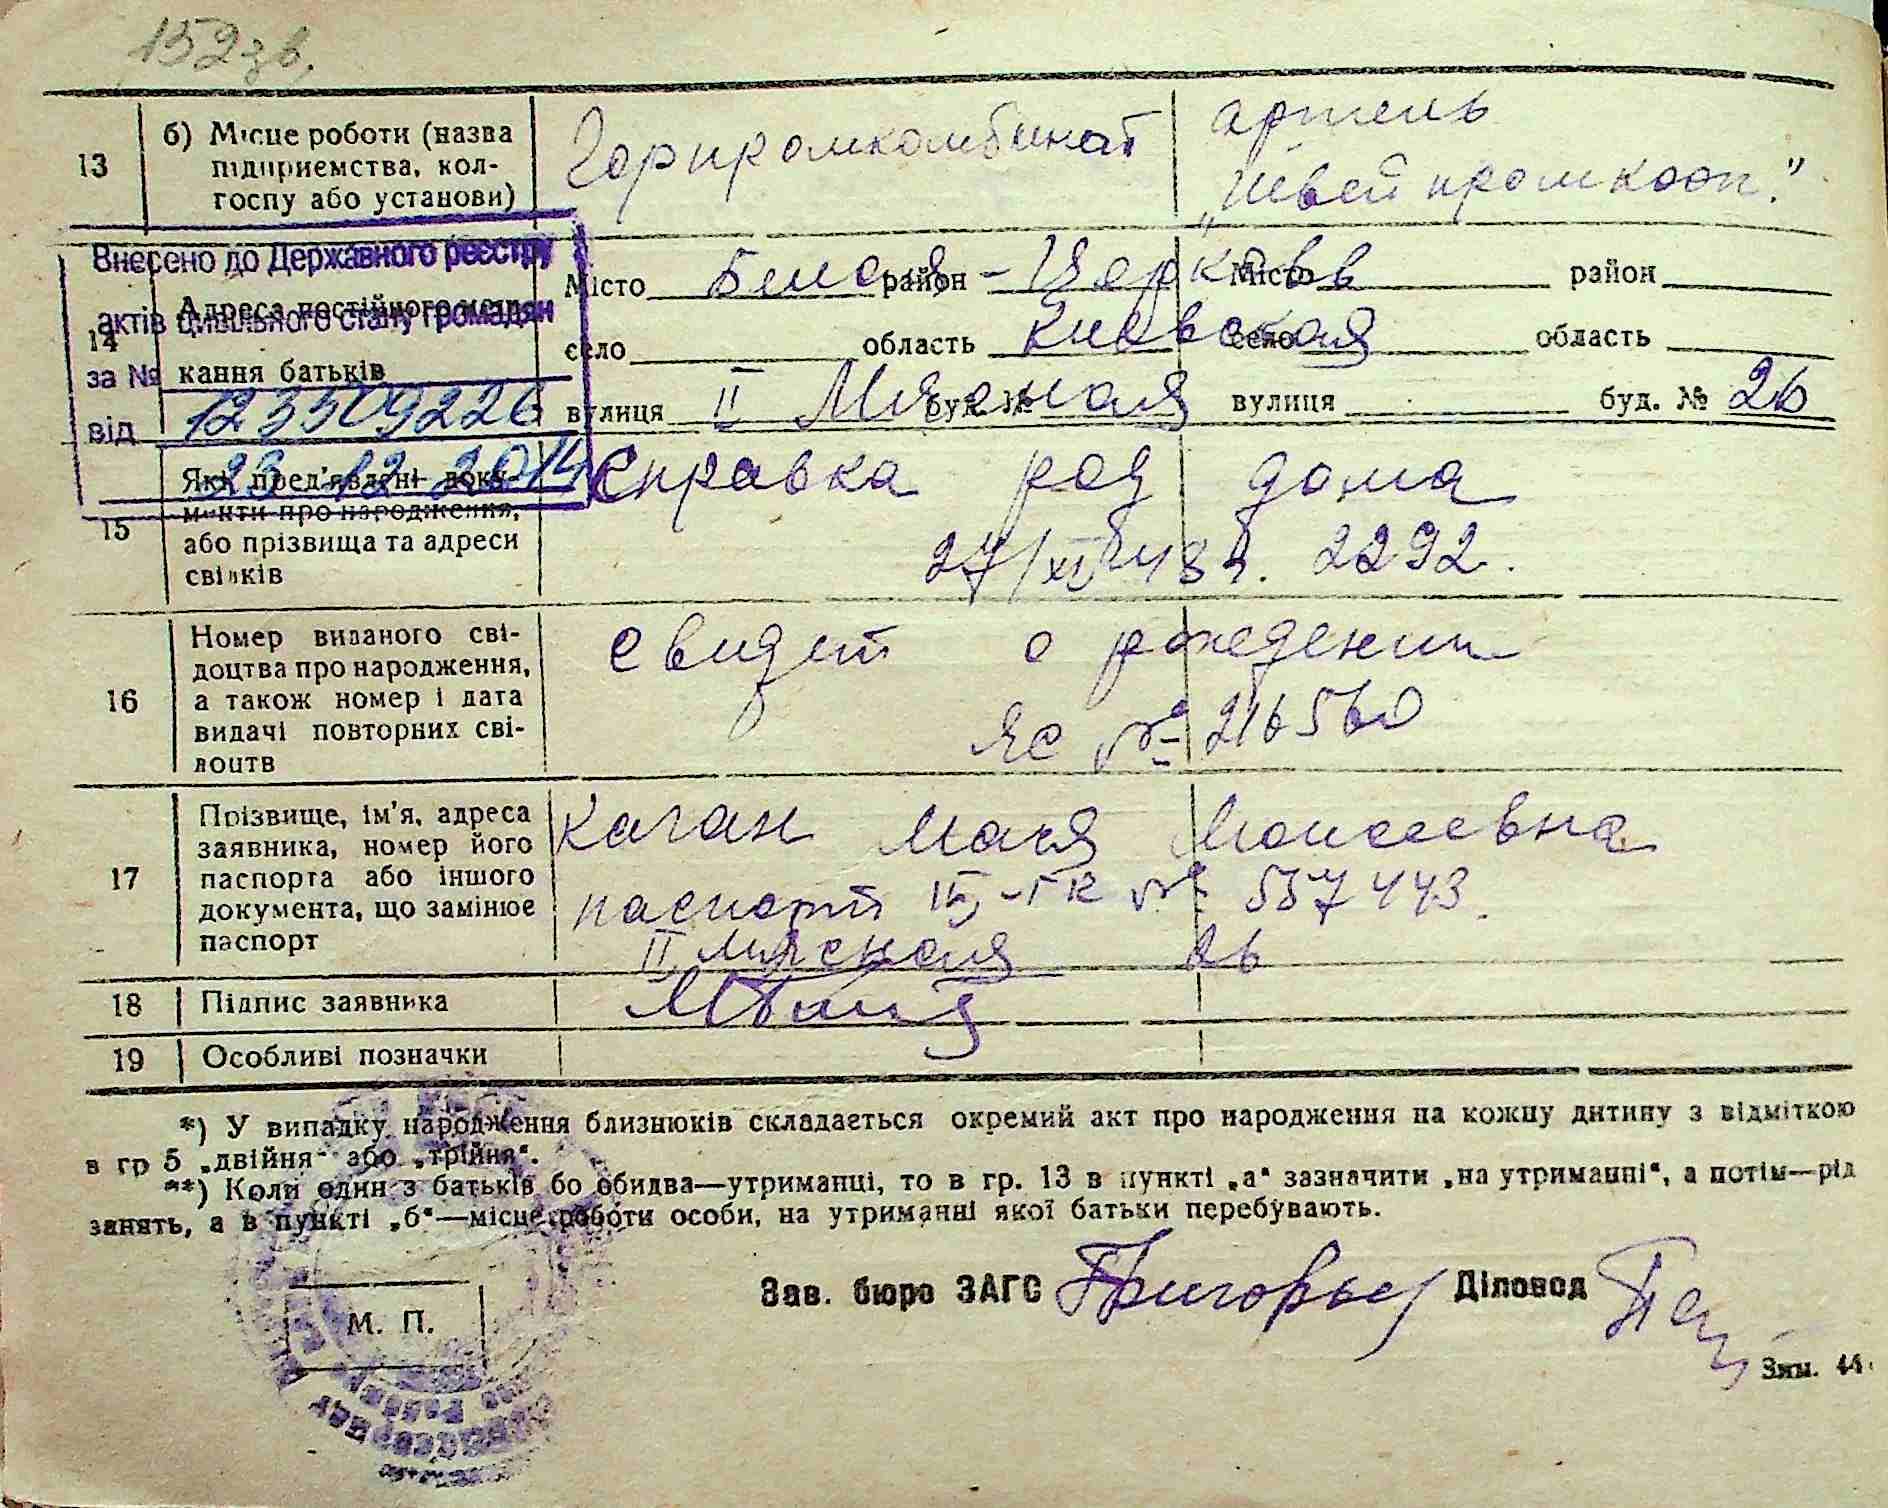 152зв.
13
б) Місце роботи (назва
підприємства, кол-
госпу або установи)
Горпромкомбинат
артель
„Швейпромкооп."
Внесено до Державного реєстру
актів цивільного стану громадян
за №
123509226
від
23 12 2014
14
Адреса постійного меш-
кання батьків
Місто Белая район - Церковь Місто район
село область Киевская село область
вулиця II Мясная буд. № вулиця буд. № 26
15
Які пред'явлені доку-
менти про народження,
або прізвища та адреси
свідків
Справка род дома
27/XI 48 г. 2292.
16
Номер виданого сві-
доцтва про народження,
а також номер і дата
видачі повторних сві-
доцтв
свидет о рождении
ЯС № 216560
17
Прізвище, ім'я, адреса
заявника, номер його
паспорта або іншого
документа, що замінює
паспорт
Каган Маня Моисеевна
паспорт № 557443.
II Мясная 26
18
Підпис заявника
19
Особливі позначки
*) У випадку народження близнюків складається окремий акт про народження на кожну дитину з відміткою
в гр 5 „двійня" або „трійня".
**) Коли один з батьків бо обидва—утриманці, то в гр. 13 в пункті „а" зазначити „на утриманні", а потім—рід
занять, а в пункті „б"—місце роботи особи, на утриманні якої батьки перебувають.
Зав. бюро ЗАГС Григорьев Діловод
М. П.
Зам. 44